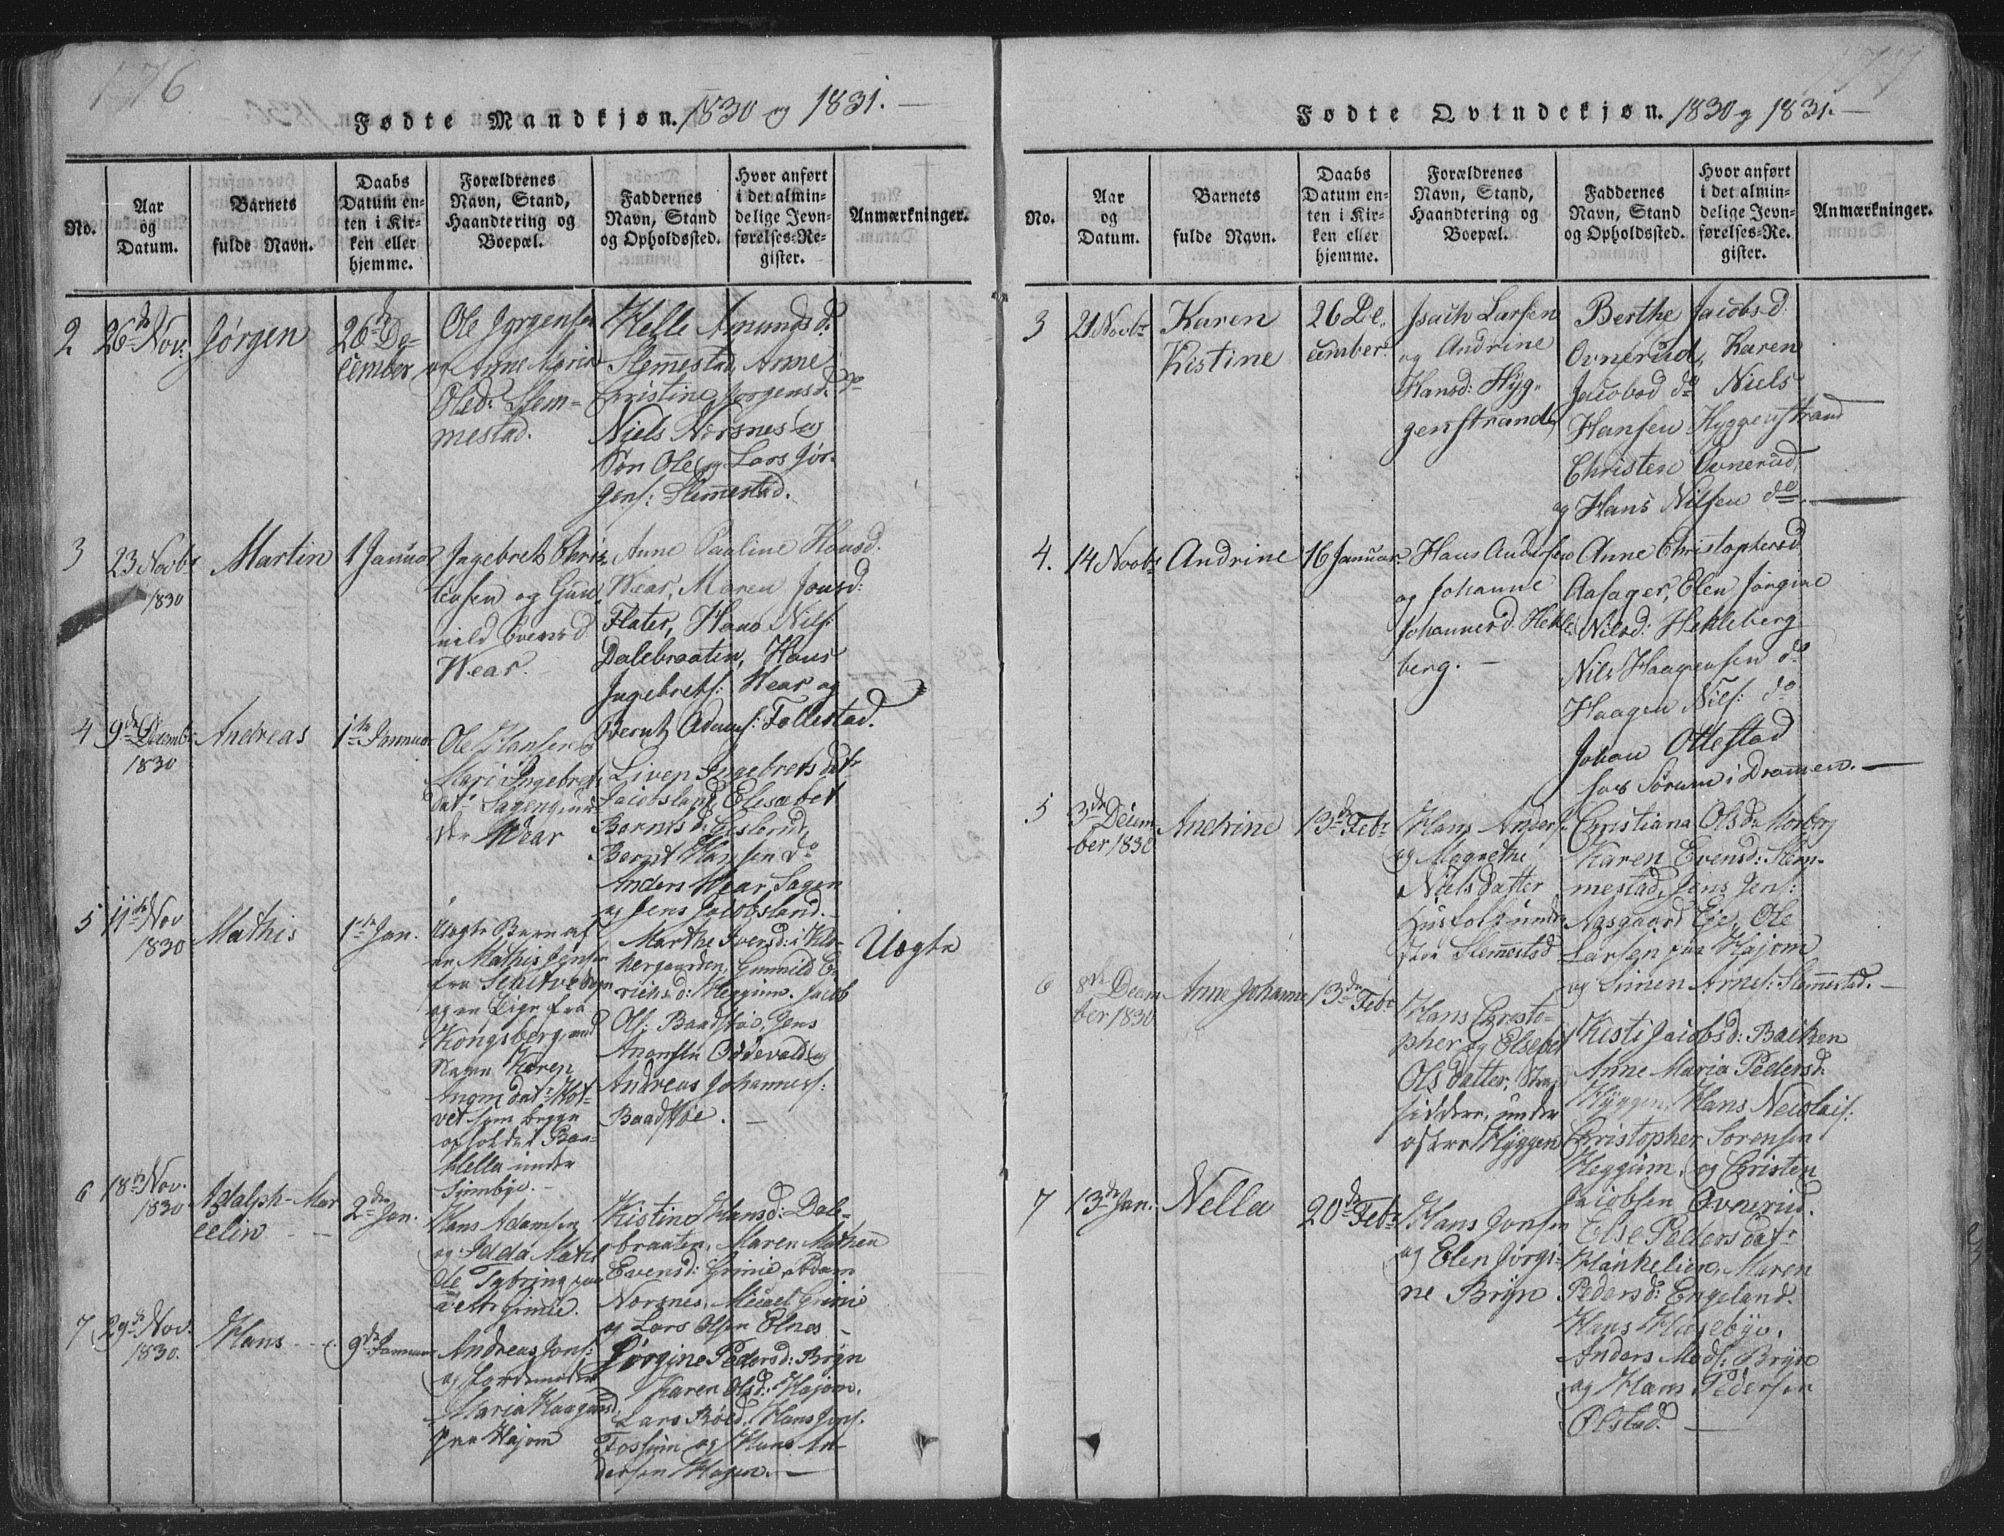 176
Fødte Mandkjøn. 1830 og 1831.
No.
Aar og Datum.
Barnets fulde Navn.
Daabs Datum enten i Kirken eller hjemme.
Forældrenes Navn, Stand, Haandtering og Boepæl.
Faddernes Navn, Stand og Opholdssted.
Hvor anført i det almindelige Jevnførelses-Register.
Anmærkninger.
2
26de Nov:
Jørgen
26de De-
cember
Ole Jørgensen
og Anne Maria
Olesd: Slem-
mestad.
Helle Amundsd.
Slemmestad, Anne
Christine Jørgensd. do
Niels Nersnes og
Søn Ole og Lars Jør-
gens: Slemmestad.
3
23 Novbr
1830
Martin
1 Januar
Ingebret Chris-
tensen og Gun-
nild Evensd
Wear.
Anne Pauline Hansd:
Wear, Maren Jonsd:
Flater, Hans Nils:
Dalebraaten, Hans
Ingebrets: Wear og
Bernt Adams: Follestad.
4
9de Decemb:
1830
Andreas
1ste Januar
Ole Hansen og
Mari Ingebrets
dat: Sagen un-
der Wear
Liven Ingebrets dat:
Jacobsland, Elisabet
Berntsd: Gislerud,
Bernt Hansen do
Anders Wear Sagen
og Jens Jacobsland.
5
11te Nov
1830
Mathis
1ste Jan.
Uægte Barn af
en Mathis Jensen
fra
og en Pige fra
Kongsberg, ved
Navn Karen
som begge
opholdt
Hella under
Marthe Iversd: i Klo-
kergaarden, Gunnild E-
richsd: Heggum. Jacob
Ols: Baadstøe, Jens
og
Andreas Johanness:
Baadstøe.
Uægte
6
18de Nov.
1830
Adolph Mar
celin
2den Jan.
Hans Adamsen
og Idda Matil
de Tybring paa
Grimie.
Kistine Hansd: Dale-
braaten, Maren Mathea
Evensd: Grinie, Adam
Norsnes, Micael Grinie
og Lars Olsen Elnes
7
29de Nov.
1830.
Hans
9de Januar
Andreas Jons:
og Jordemoder
Maria Haagensd
paa Hajom
Jørgine Pedersd: Brøyn
Karen Olsd: Hajom,
Lars Bøed, Hans Jens:
Fossum og Hans An-
dersen Hagen.
177
Fødte Qvindekjøn. 1830 og 1831.
No.
Aar og Datum.
Barnets fulde Navn.
Daabs Datum enten i Kirken eller hjemme.
Forældrenes Navn, Stand, Haandtering og Boepæl.
Faddernes Navn, Stand og Opholdssted.
Hvor anført i det almindelige Jevnførelses-Register.
Anmærkninger.
3
21 Novbr
Karen
Kistine
26 De-
cember
Isach Larsen
og Andrine
Hansd: Hyg-
genstrand
Berthe Jacobsd:
Ovnerud, Karen
Jacobsd do Niels
Hansen Hyggenstrand
Christen Ovnerud,
og Hans Nilsen do.
4.
14 Novbr
Andrine
16 Januar
Hans Andersen
og Johanne
Johannesd: Hekle-
berg.
Anne Christophersd
Aasager, Elen Jørgine
Nilsd: Hekleberg
Nils Haagensen do
Haagen Nils: do
Johan Ottestad
hos Sørum i Dramen.
5
3de Decem-
ber 1830
Andrine
13de Febr
Hans Anders:
og Magrethe
Nielsdatter
Husfolk under
Slemestad
Christiana Olsd: Morberg
Karen Evensd: Slem-
mestad, Jens Jens:
Aasgaard Eje, Ole
Larsen paa Hajom
og Simen Arnes: Slemmestad.
6
8de Decem-
ber 1830
Anne Johanne
13de Febr
Hans Christo-
pher og Elsebet
Olsdatter, Strand
siddere, under
østre Hyggen
Kisti Jacobsd: Bakken
Anne Maria Pedersd:
Hyggen, Hans Nicolais:
Christopher Sørensen
Heggum, og Christen
Jacobsen Ovnerud.
7
13de Jan:
Nella
20de Febr
Hans Jonsen
og Elen Jørgi-
ne Brøyn
Else Pedersdat:
Hankelien, Maren
Pedersd: Engeland.
Hans Husebye,
Anders Mads: Brøyn
og Hans Pedersen
Ølstad.